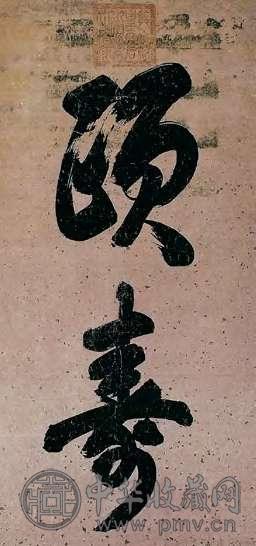 頤
壽
中华收藏网
www.pmv.cn